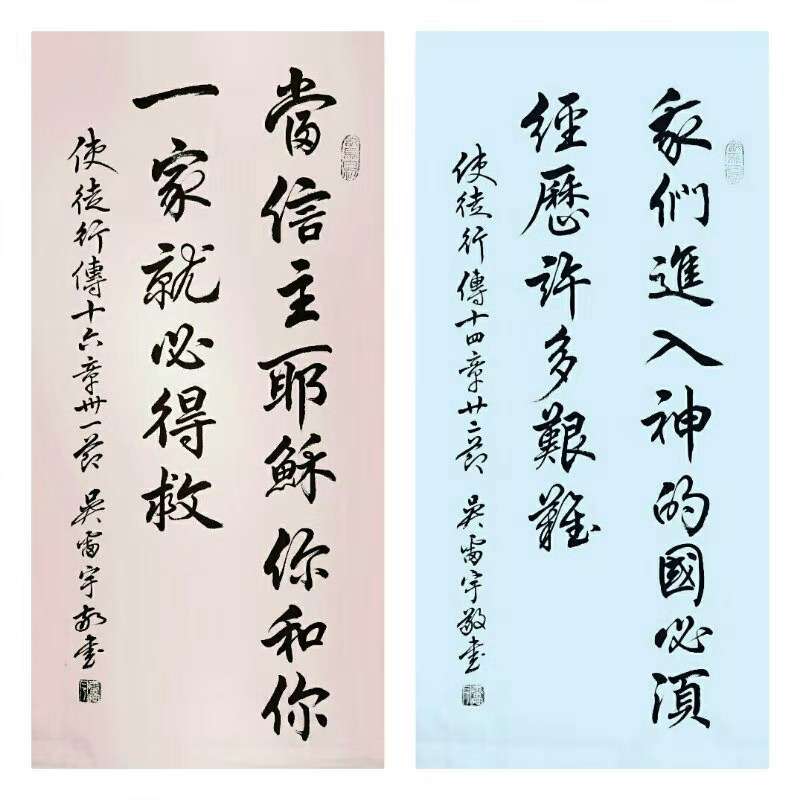 當信主耶穌你和你
一家就必得救
使徒行傳十六章卅一節 吳雷宇敬書
我們進入神的國必須
經歷許多艱難
使徒行傳十四章廿二節 吳雷宇敬書